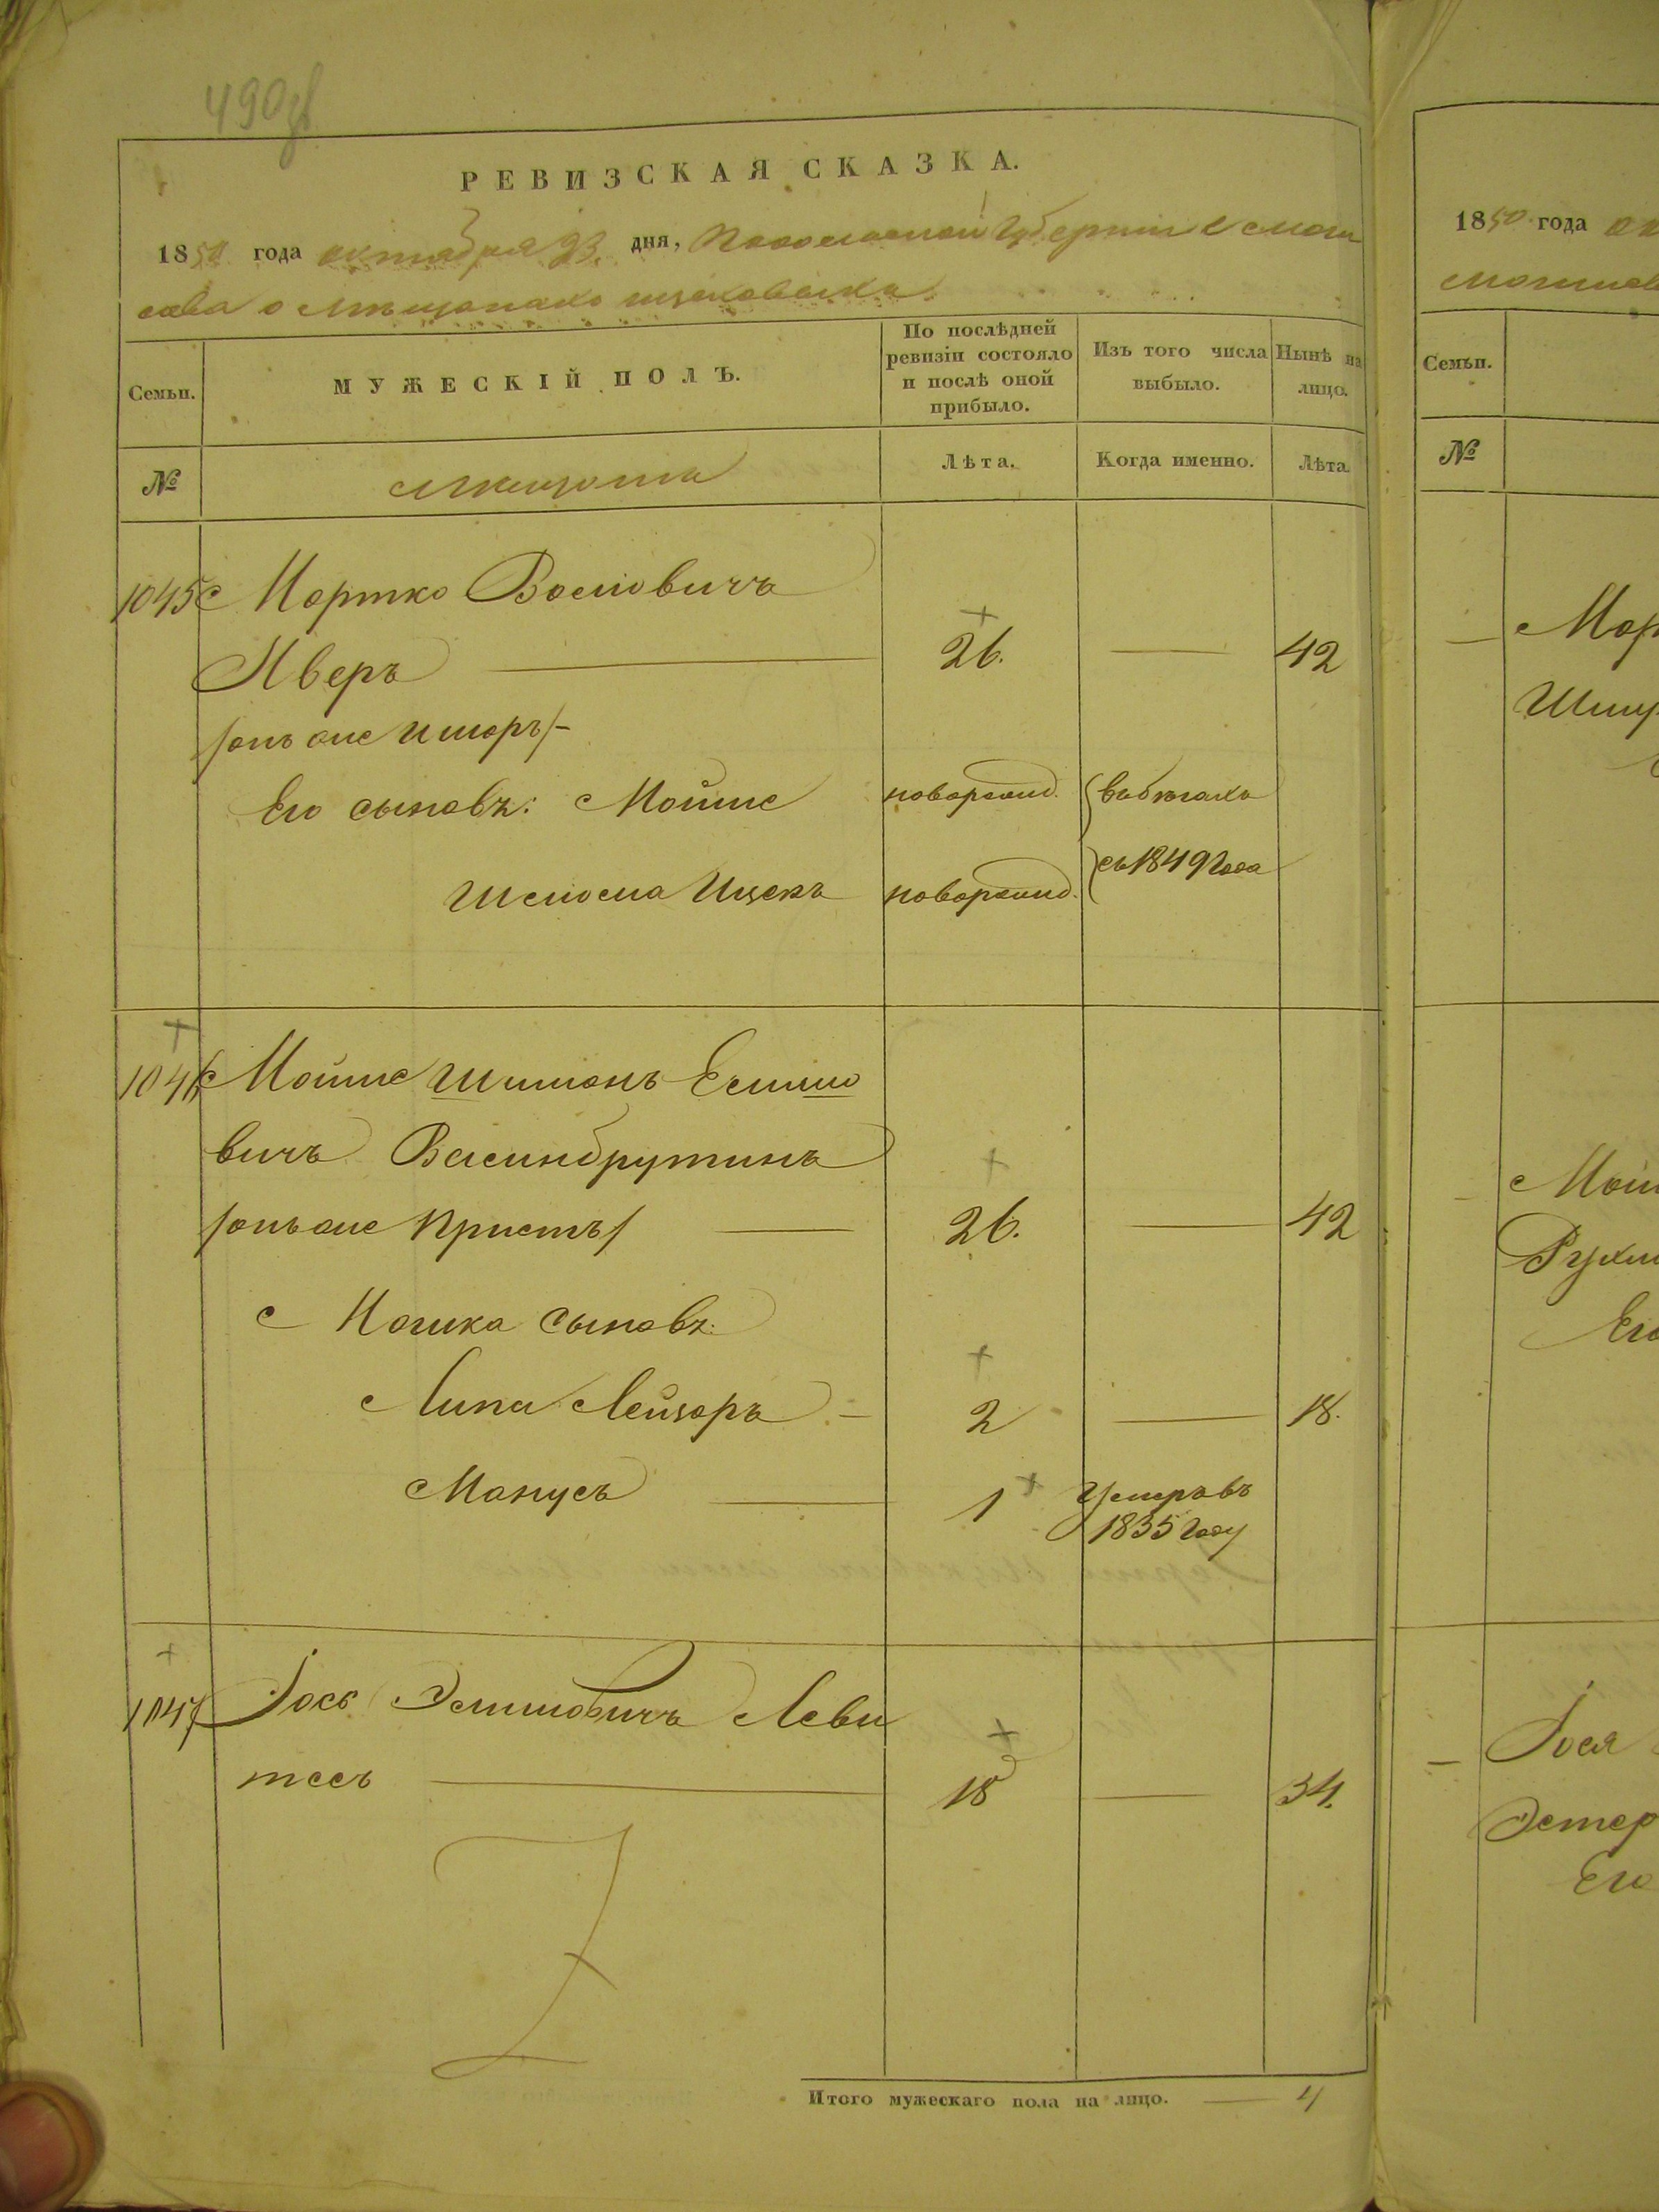 490об
РЕВИЗСКАЯ СКАЗКА.
1850 года октября 23 дня, Подольской Губернии Моги
лева о мѣщанахъ
Семьи.
МУЖЕСКІЙ ПОЛЪ.
По послѣдней ревизіи состояло и послѣ оной прибыло.
Изъ того числа выбыло.
Нынѣ на лицо.
№
мѣщане
Лѣта.
Когда именно.
Лѣта.
1045 Мортко Волиовичъ
Яверъ 26. 42
онъ же
Его сыновъ: Мойше новорожд. въ бѣгахъ
Шелиома Ицекъ новорожд. съ 1849 года
1046 Мойше Шимонъ Елимо
вичъ Вейсинбрутинъ
онъ же 26. 42
Мошка сыновъ:
Липа Лейзоръ 2 18.
Манусъ 1 Умеръ въ
1835 году
1047 Іосъ Элимовичъ Леви
тесъ 18 34.
Итого мужескаго пола на лицо. 4
1850 года
Семьи.
№
Мор
Мой
Рухли
Его
Іося
Эстер
Его